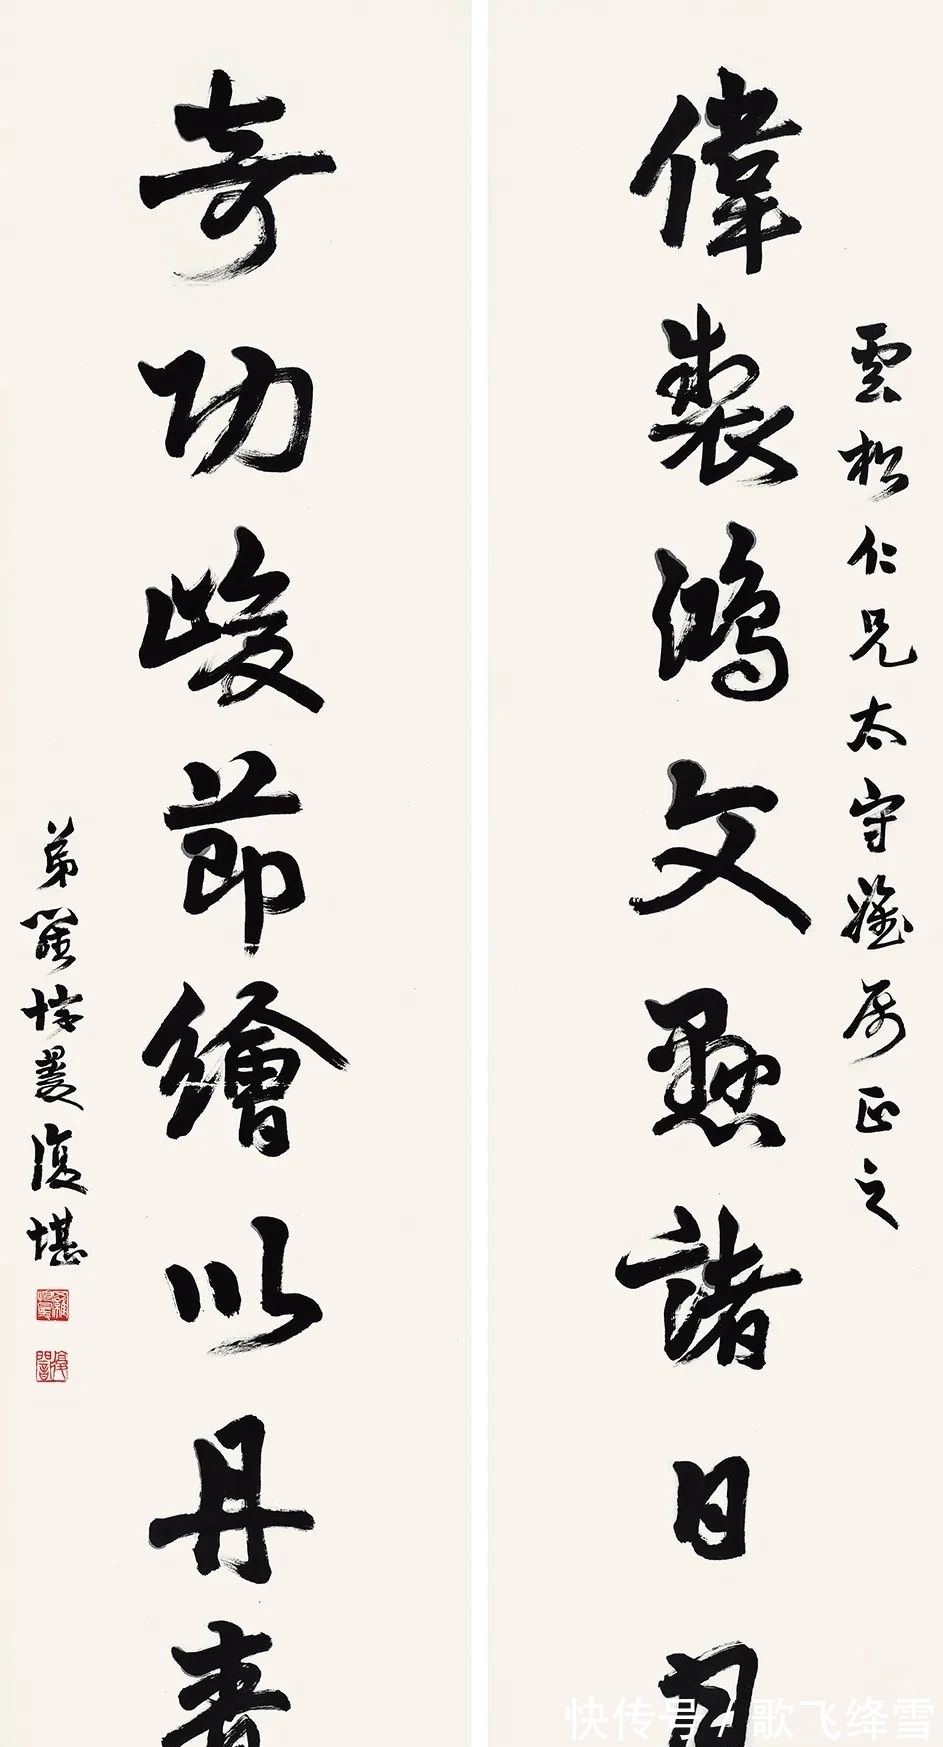 雲松仁兄太守雅屬正之
偉製鴻文懸諸日月
奇功峻節繪以丹青
弟羅惇㬊復堪
快传号/歌飞绛雪